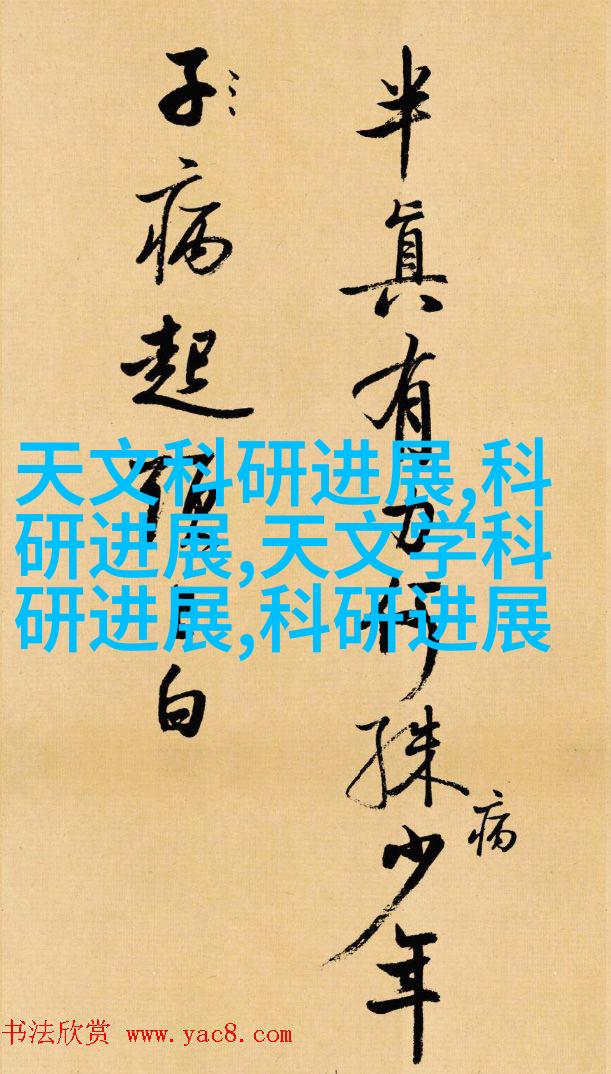 半真有力何殊少年
病
子病起須白
天文科研进展,科
研进展,天文学科
研进展,科研进展
书法欣赏 www.yac8.com